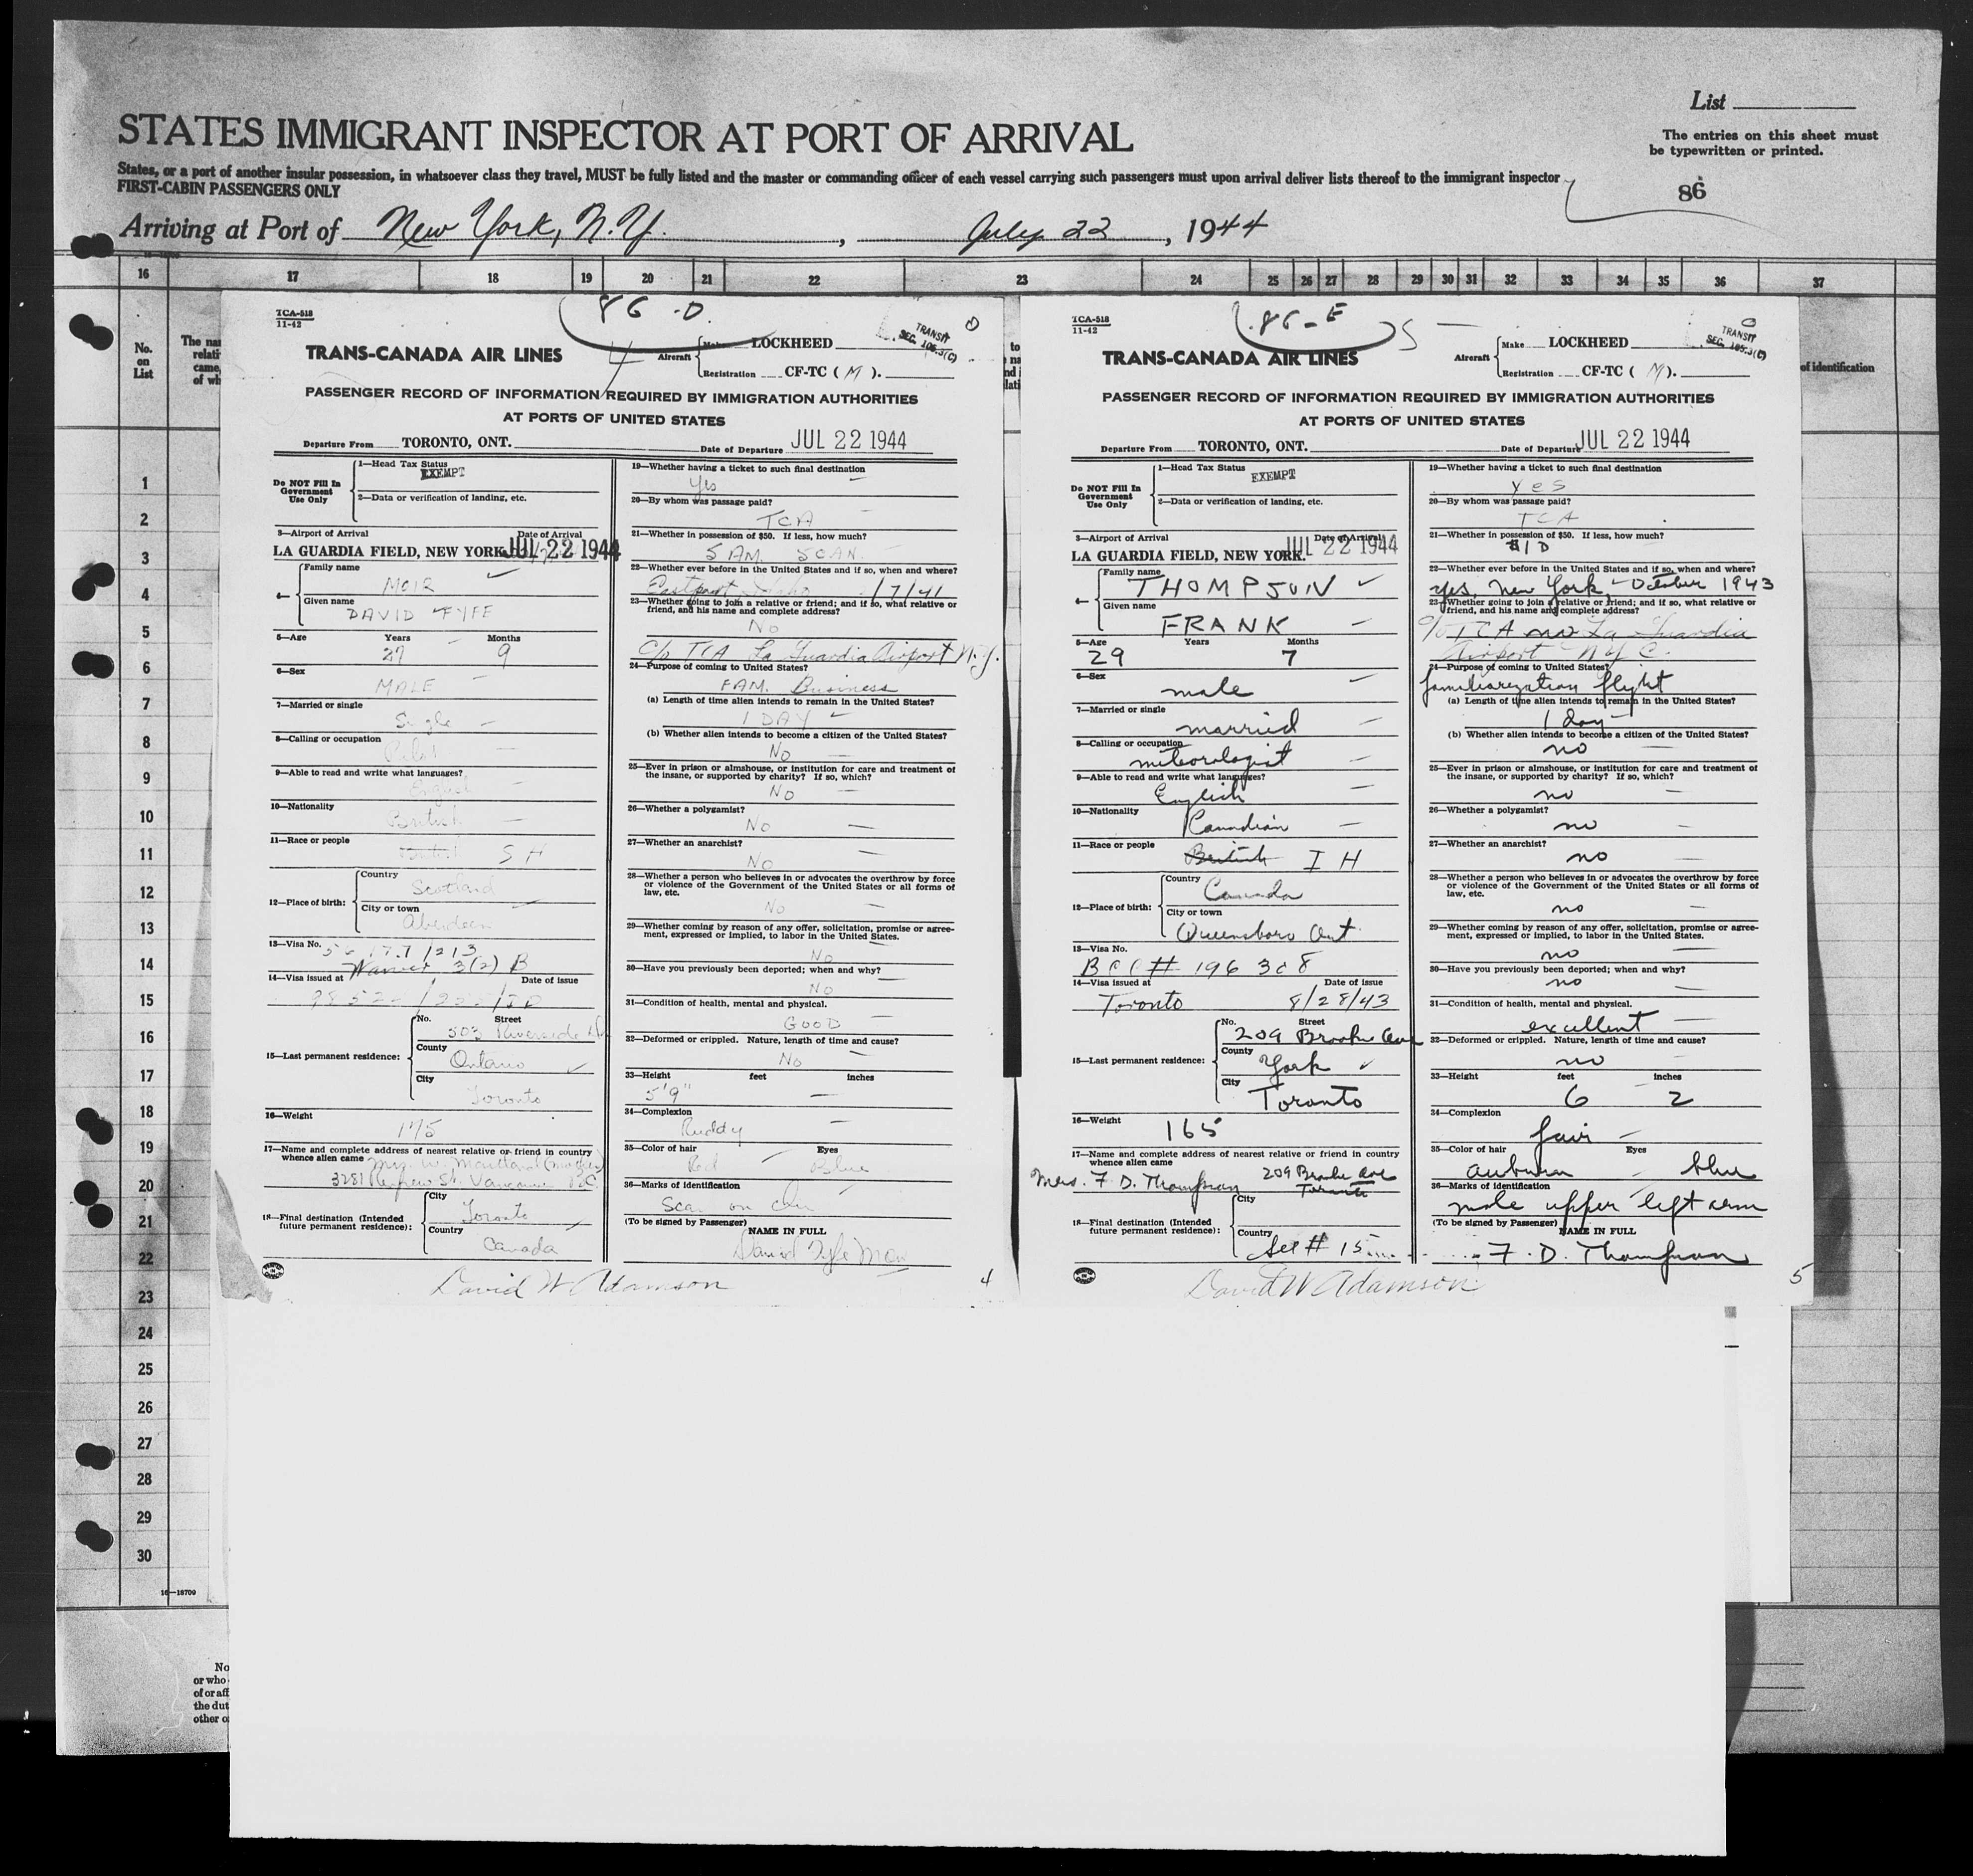 List
The entries on this sheet must
be typewritten or printed.
STATES IMMIGRANT INSPECTOR AT PORT OF ARRIVAL
States, or a port of another insular possession, in whatsoever class they travel, MUST be fully listed and the master or commanding officer of each vessel carrying such passengers must upon arrival deliver lists thereof to the immigrant inspector
FIRST-CABIN PASSENGERS ONLY
86
Arriving at Port of New York, N.Y., July 22, 1944
16 17 18 19 20 21 22 23 24 25 26 27 28 29 30 31 32 33 34 35 36 37
No. on List
The
relati
came,
of wh
of identification
1
2
3
4
5
6
7
8
9
10
11
12
13
14
15
16
17
18
19
20
21
22
23
24
25
26
27
28
29
30
16—18709
No
or who
of or aff
the dut
other o
TCA-518
11-42
86-D
TRANSIT
SEC. 105.3(C)
TRANS-CANADA AIR LINES
4
Aircraft
Make LOCKHEED
Registration CF-TC (M).
PASSENGER RECORD OF INFORMATION REQUIRED BY IMMIGRATION AUTHORITIES
AT PORTS OF UNITED STATES
Departure From TORONTO, ONT. Date of Departure JUL 22 1944
Do NOT Fill In
Government
Use Only
1—Head Tax Status
EXEMPT
2—Data or verification of landing, etc.
3—Airport of Arrival Date of Arrival
LA GUARDIA FIELD, NEW YORK. JUL 22 1944
4— Family name
MOIR
Given name
DAVID FYFE
5—Age Years Months
27 9
6—Sex
MALE
7—Married or single
Single
8—Calling or occupation
Pilot
9—Able to read and write what languages?
English
10—Nationality
British
11—Race or people
British S H
12—Place of birth:
Country
Scotland
City or town
Aberdeen
13—Visa No.
Waiver 3(2) B
14—Visa issued at Date of issue
15—Last permanent residence:
No. Street
503 Riverside
County
Ontario
City
Toronto
16—Weight
175
17—Name and complete address of nearest relative or friend in country
whence alien came
Mrs. W. Maitland
3281 Renfrew St. Vancouver B.C.
18—Final destination (Intended
future permanent residence):
City
Toronto
Country
Canada
19—Whether having a ticket to such final destination
Yes
20—By whom was passage paid?
TCA
21—Whether in possession of $50. If less, how much?
5 AM. 5 CAN.
22—Whether ever before in the United States and if so, when and where?
Eastport Idaho 1/7/41
23—Whether going to join a relative or friend; and if so, what relative or
friend, and his name and complete address?
No
c/o TCA La Guardia Airport N.Y.
24—Purpose of coming to United States?
FAM. Business
(a) Length of time alien intends to remain in the United States?
1 DAY
(b) Whether alien intends to become a citizen of the United States?
No
25—Ever in prison or almshouse, or institution for care and treatment of
the insane, or supported by charity? If so, which?
No
26—Whether a polygamist?
No
27—Whether an anarchist?
No
28—Whether a person who believes in or advocates the overthrow by force
or violence of the Government of the United States or all forms of
law, etc.
No
29—Whether coming by reason of any offer, solicitation, promise or agree-
ment, expressed or implied, to labor in the United States.
No
30—Have you previously been deported; when and why?
No
31—Condition of health, mental and physical.
GOOD
32—Deformed or crippled. Nature, length of time and cause?
No
33—Height feet inches
5'9"
34—Complexion
Ruddy
35—Color of hair Eyes
Red Blue
36—Marks of identification
Scar on chin
(To be signed by Passenger) NAME IN FULL
David Fyfe Moir
David W. Adamson
4
TCA-518
11-42
86-E
5
TRANSIT
SEC. 105.3(C)
TRANS-CANADA AIR LINES
Aircraft
Make LOCKHEED
Registration CF-TC (M).
PASSENGER RECORD OF INFORMATION REQUIRED BY IMMIGRATION AUTHORITIES
AT PORTS OF UNITED STATES
Departure From TORONTO, ONT. Date of Departure JUL 22 1944
Do NOT Fill In
Government
Use Only
1—Head Tax Status
EXEMPT
2—Data or verification of landing, etc.
3—Airport of Arrival Date of Arrival
LA GUARDIA FIELD, NEW YORK. JUL 22 1944
4— Family name
THOMPSON
Given name
FRANK
5—Age Years Months
29 7
6—Sex
male
7—Married or single
married
8—Calling or occupation
meteorologist
9—Able to read and write what languages?
English
10—Nationality
Canadian
11—Race or people
British I H
12—Place of birth:
Country
Canada
City or town
Queensboro Ont
13—Visa No.
BCC# 196308
14—Visa issued at Date of issue
Toronto 8/28/43
15—Last permanent residence:
No. Street
209 Brooke Ave
County
York
City
Toronto
16—Weight
165
17—Name and complete address of nearest relative or friend in country
whence alien came
Mrs. F. D. Thompson 209 Brooke Ave
Toronto
18—Final destination (Intended
future permanent residence):
City
Country
See # 15
19—Whether having a ticket to such final destination
Yes
20—By whom was passage paid?
TCA
21—Whether in possession of $50. If less, how much?
$10
22—Whether ever before in the United States and if so, when and where?
yes, New York - October 1943
23—Whether going to join a relative or friend; and if so, what relative or
friend, and his name and complete address?
c/o TCA no La Guardia
Airport N.Y.C.
24—Purpose of coming to United States?
familiarization flight
(a) Length of time alien intends to remain in the United States?
1 day
(b) Whether alien intends to become a citizen of the United States?
no
25—Ever in prison or almshouse, or institution for care and treatment of
the insane, or supported by charity? If so, which?
no
26—Whether a polygamist?
no
27—Whether an anarchist?
no
28—Whether a person who believes in or advocates the overthrow by force
or violence of the Government of the United States or all forms of
law, etc.
no
29—Whether coming by reason of any offer, solicitation, promise or agree-
ment, expressed or implied, to labor in the United States.
no
30—Have you previously been deported; when and why?
no
31—Condition of health, mental and physical.
excellent
32—Deformed or crippled. Nature, length of time and cause?
no
33—Height feet inches
6 2
34—Complexion
fair
35—Color of hair Eyes
auburn blue
36—Marks of identification
mole upper left arm
(To be signed by Passenger) NAME IN FULL
F. D. Thompson
David W Adamson
5